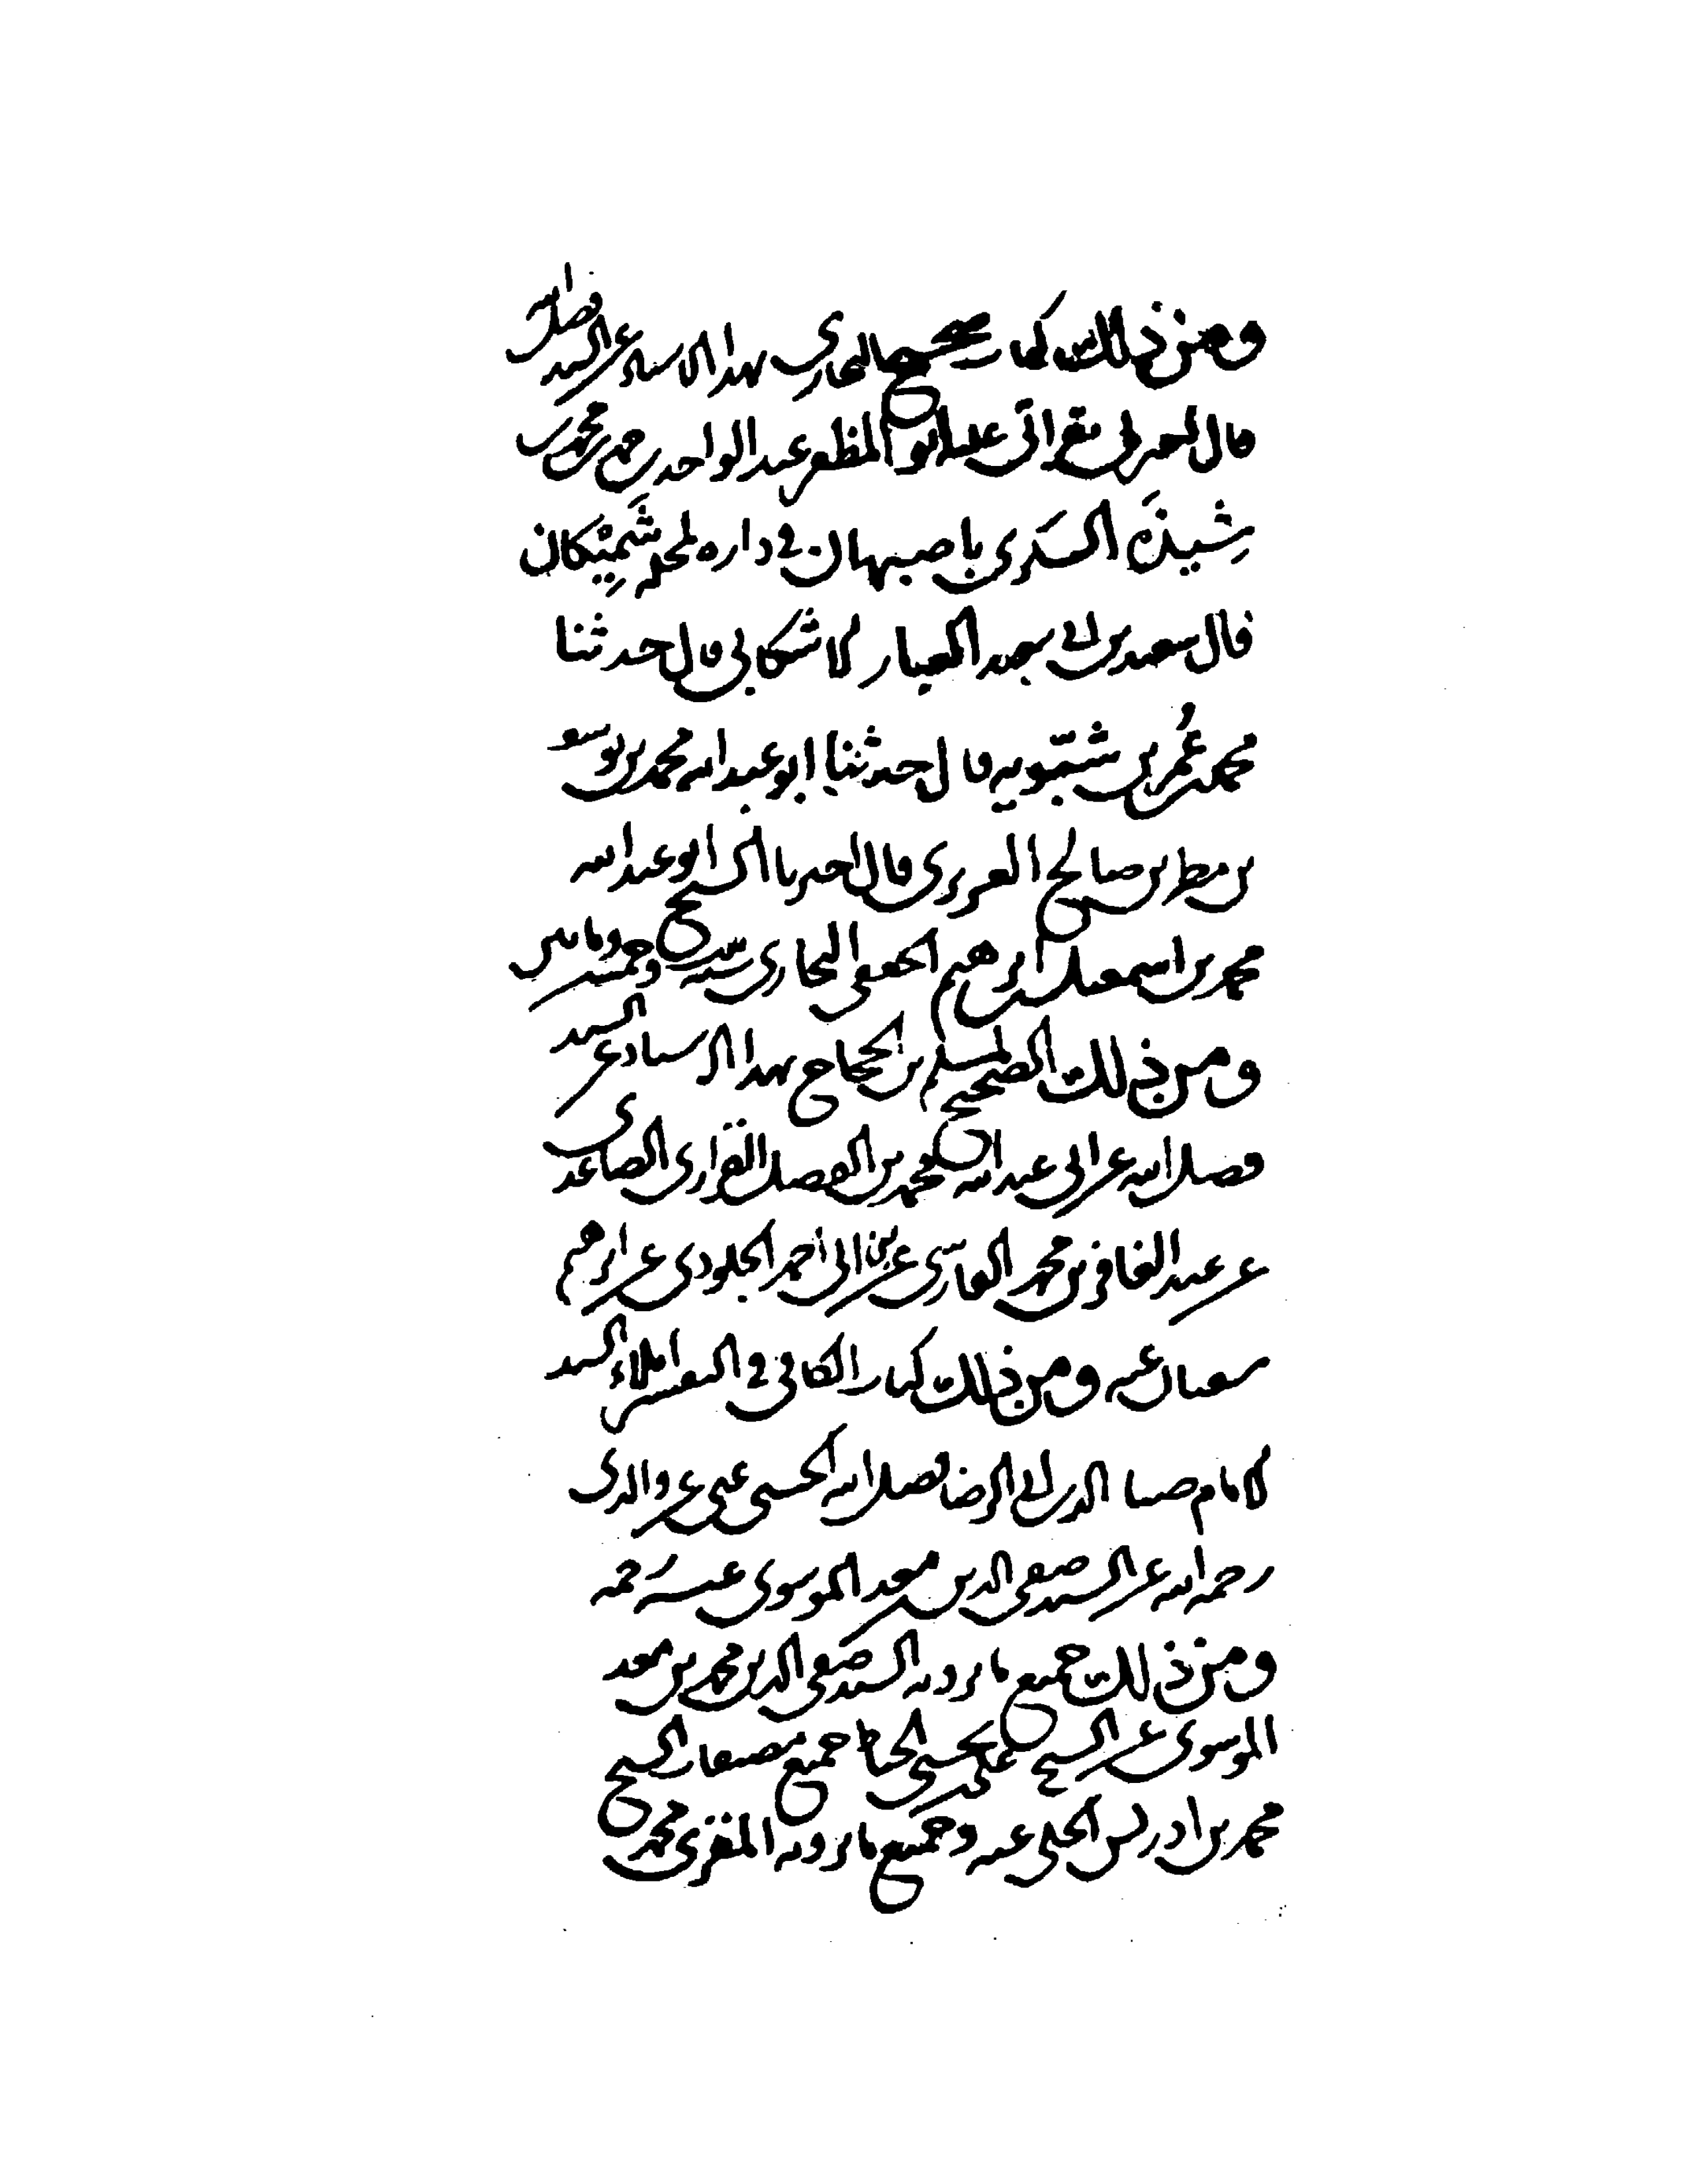 ومن ذلك كتاب صحيح البخاري بهذا الاسناد عن السيد فضل الله
قال اخبرني بقراتي عليه ابو المظفر عبد الواحد بن حمد بن محمد بن
شِيذَه السكرى باصبهان في داره بمحلة شَمِيْكان
قال سعيد بن ابي سعيد العيار الاشكابي قال حدثنا
محمد بن عُمر بن شَبّويه قال حدثنا ابو عبد الله محمد بن يوسف
بن مطر بن صالح الفربرى قال اخبرنا الشيخ ابو عبد الله
محمد بن اسمعيل بن ابرهيم الجعفى البخارى سنة ثلث وخمسين ومايتين
ومن ذلك الصحيح لمسلم بن الحجاج بهذا الاسناد عن السيد
فضل الله عن ابى عبد الله محمد بن الفضل الفراوى الصاعدى
عن عبد الغافر بن محمد الفارسى عن ابى احمد الجلودى عن ابرهيم
بن سفيان عنه ومن ذلك كتاب الكافى في التفسير املاء السيد
الامام ضيا الدين ابي الرضا فضل الله الحسنى عنى عن والدى
رحمه الله عن السيد صفى الدين بن معد الموسوى عن رحمه
ومن ذلك جميع ما يرويه السيد صفى الدين محمد بن معد
الموسوى عن الشيخ على بن يحيى الخياط جميع مصنفات الشيخ
محمد بن ادريس الحلى عنه وجميع ما يرويه المقرى محمد